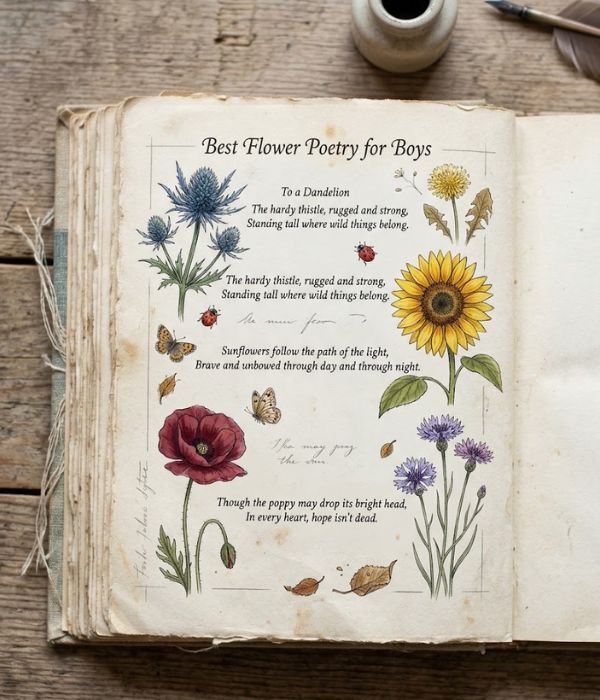 Best Flower Poetry for Boys
To a Dandelion
The hardy thistle, rugged and strong,
Standing tall where wild things belong.
The hardy thistle, rugged and strong,
Standing tall where wild things belong.
Sunflowers follow the path of the light,
Brave and unbowed through day and through night.
may
the
Though the poppy may drop its bright head,
In every heart, hope isn't dead.